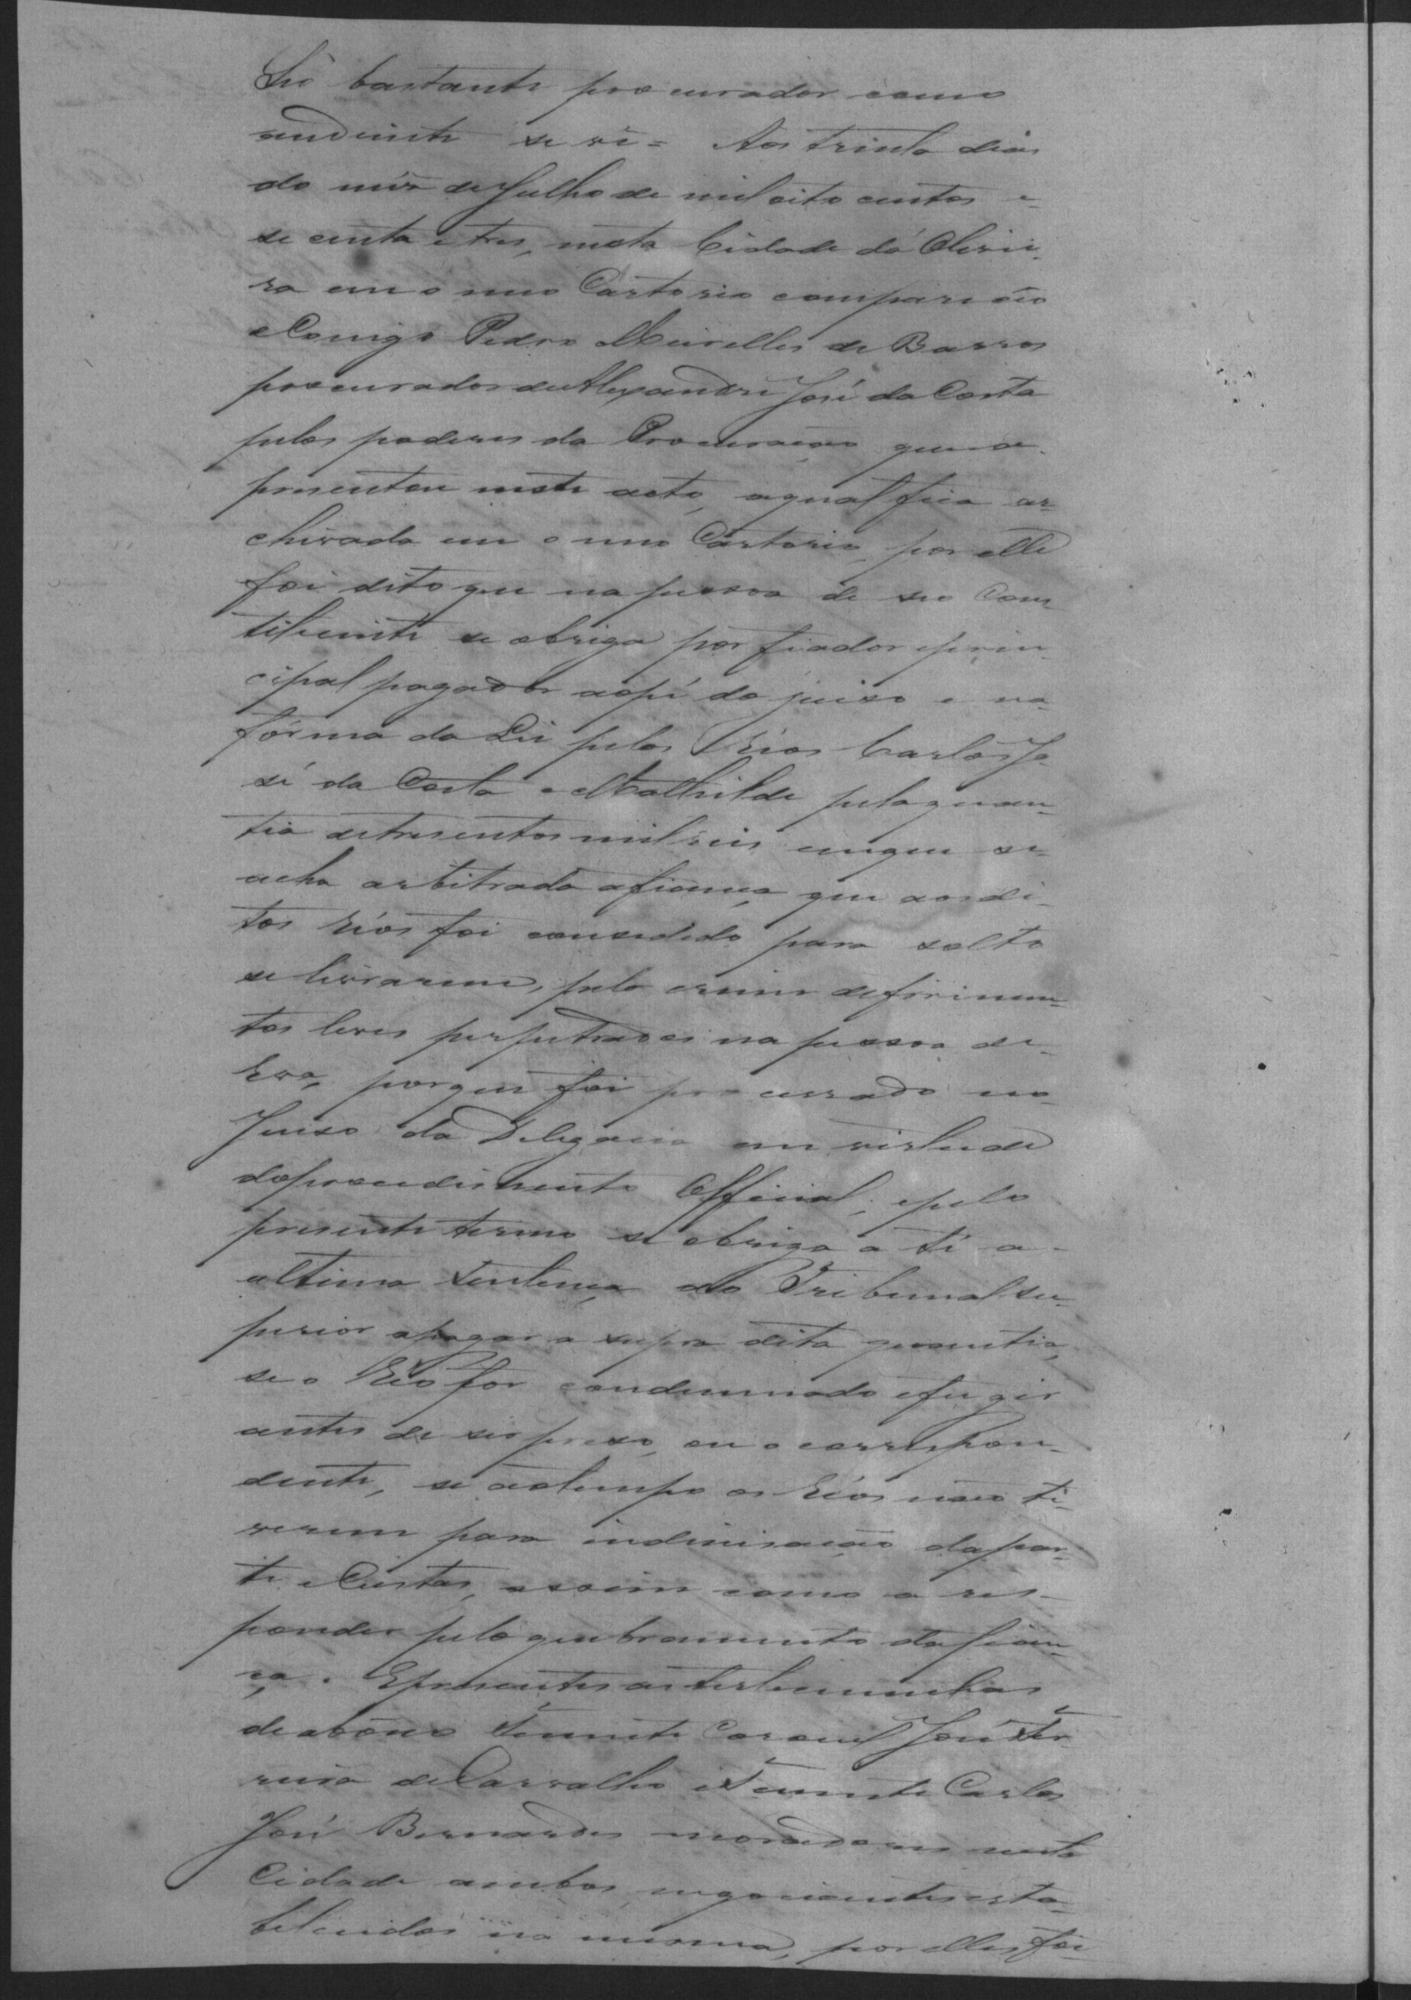 Seo bastante procurador como
audiente se vê = Aos trinta dias
do mês de Julho de mil oito centos e
secenta e tres, nesta Cidade da Olivei-
ra em o meo Cartorio compareceo
o Conigo Pedro Meirelles de Barros
procurador de Alexandre José da Costa
pelos poderes da Procuração que a-
presentou neste acto, a qual fica ar-
chivada em o meo Cartorio, por elle
foi dito que na pessoa de seo Cons-
tituinte se obriga por fiador e prin-
cipal pagador ao pé do juiso e na
fórma da Lei pelos Réos Carlos Jo-
sé da Costa e Mathilde pela quan-
tia de tresentos mil reis em que se
acha arbitrada a fiança que aos di-
tos Réos foi consedido para solto
se livrarem, pelo crime de firimen-
tos leves perpetrados na pessoa de
Eva, por que foi procurado no
Juiso da Delegacia em virtude
do procedimento Official; e pelo
presente termo se obriga a té a
ultima Sentença do Tribunal Su-
perior a pagar a supra dita quantia,
se o Réo for condemnado e fugir
antes de ser preso, ou o correspon-
dente, se ao tempo os Réos não ti-
verem para indenisação da par-
te e Custas, assim como a res-
ponder pelo quebramento da fian-
ça. E presentes as testemunhas
de abono Tenente Coronel José Fer-
reira de Carvalho e Tenente Carlos
José Bernardes moradores nesta
Cidade ambos negociantes esta-
belecidos na mesma, por elles foi